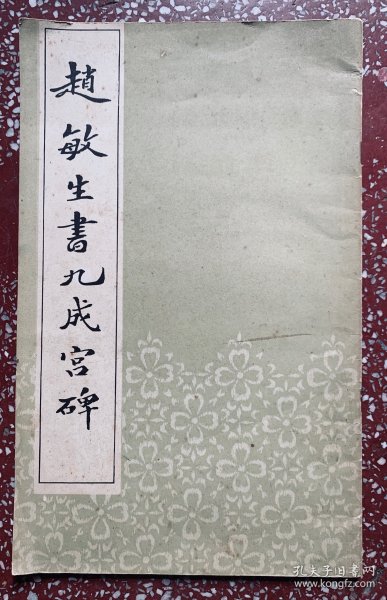 趙敏生書九成宫碑
孔夫子旧书网
www.kongfz.com